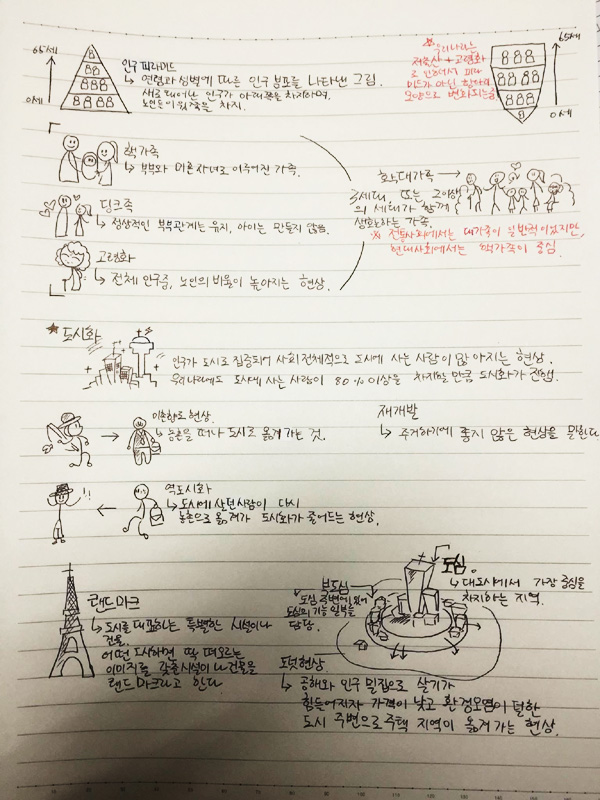 65세
0세
인구 피라미드
↳ 연령과 성별에 따른 인구 분포를 나타낸 그림.
새로 태어난 인구가 아래쪽을 차지하며,
노인들이 위쪽을 차지.
★우리나라는
저출산 + 고령화
로 인하여서 피라
미드가 아닌 항아리
모양으로 변화되는중
65세
0세
핵가족
↳ 부부와 미혼자녀로 이루어진 가족.
딩크족
↳ 정상적인 부부관계는 유지, 아이는 만들지 않음.
고령화
↳ 전체 인구중, 노인의 비율이 높아지는 현상.
확대가족
3세대, 또는 그이상
의 세대가 함께
생활하는 가족.
※ 전통사회에서는 대가족이 일반적이었지만,
현대사회에서는 핵가족이 중심.
★도시화
인구가 도시로 집중되어 사회 전체적으로 도시에 사는 사람이 많아지는 현상.
우리나라에도 도시에 사는 사람이 80%이상을 차지할 만큼 도시화가 진행.
이촌향도 현상.
↳ 농촌을 떠나 도시로 옮겨 가는 것.
재개발
↳ 주거하기에 좋지 않은 현상을 말한다
역도시화
↳ 도시에 살던 사람이 다시
농촌으로 옮겨가 도시화가 줄어드는 현상.
랜드마크
↳ 도시를 대표하는 특별한 시설이나
건물.
어떤 도시하면 딱 떠오르는
이미지를 갖춘 시설이나 건물을
랜드마크라고 한다
부도심
↳ 도심 주변에 있어
도심의 기능 일부를
담당.
도심.
↳ 대도시에서 가장 중심을
차지하는 지역.
도넛현상
↳ 공해와 인구 밀집으로 살기가
힘들어지자 가격이 낮고 환경오염이 덜한
도시 주변으로 주택 지역이 옮겨 가는 현상.